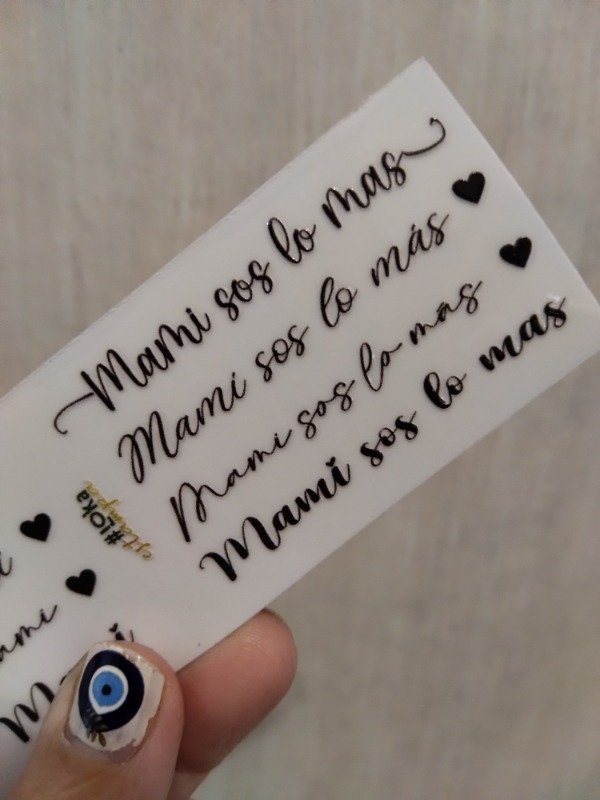 Mami sos lo mas
Mami sos lo más
Mami sos lo más
Mami sos lo mas
#LOKA
ami